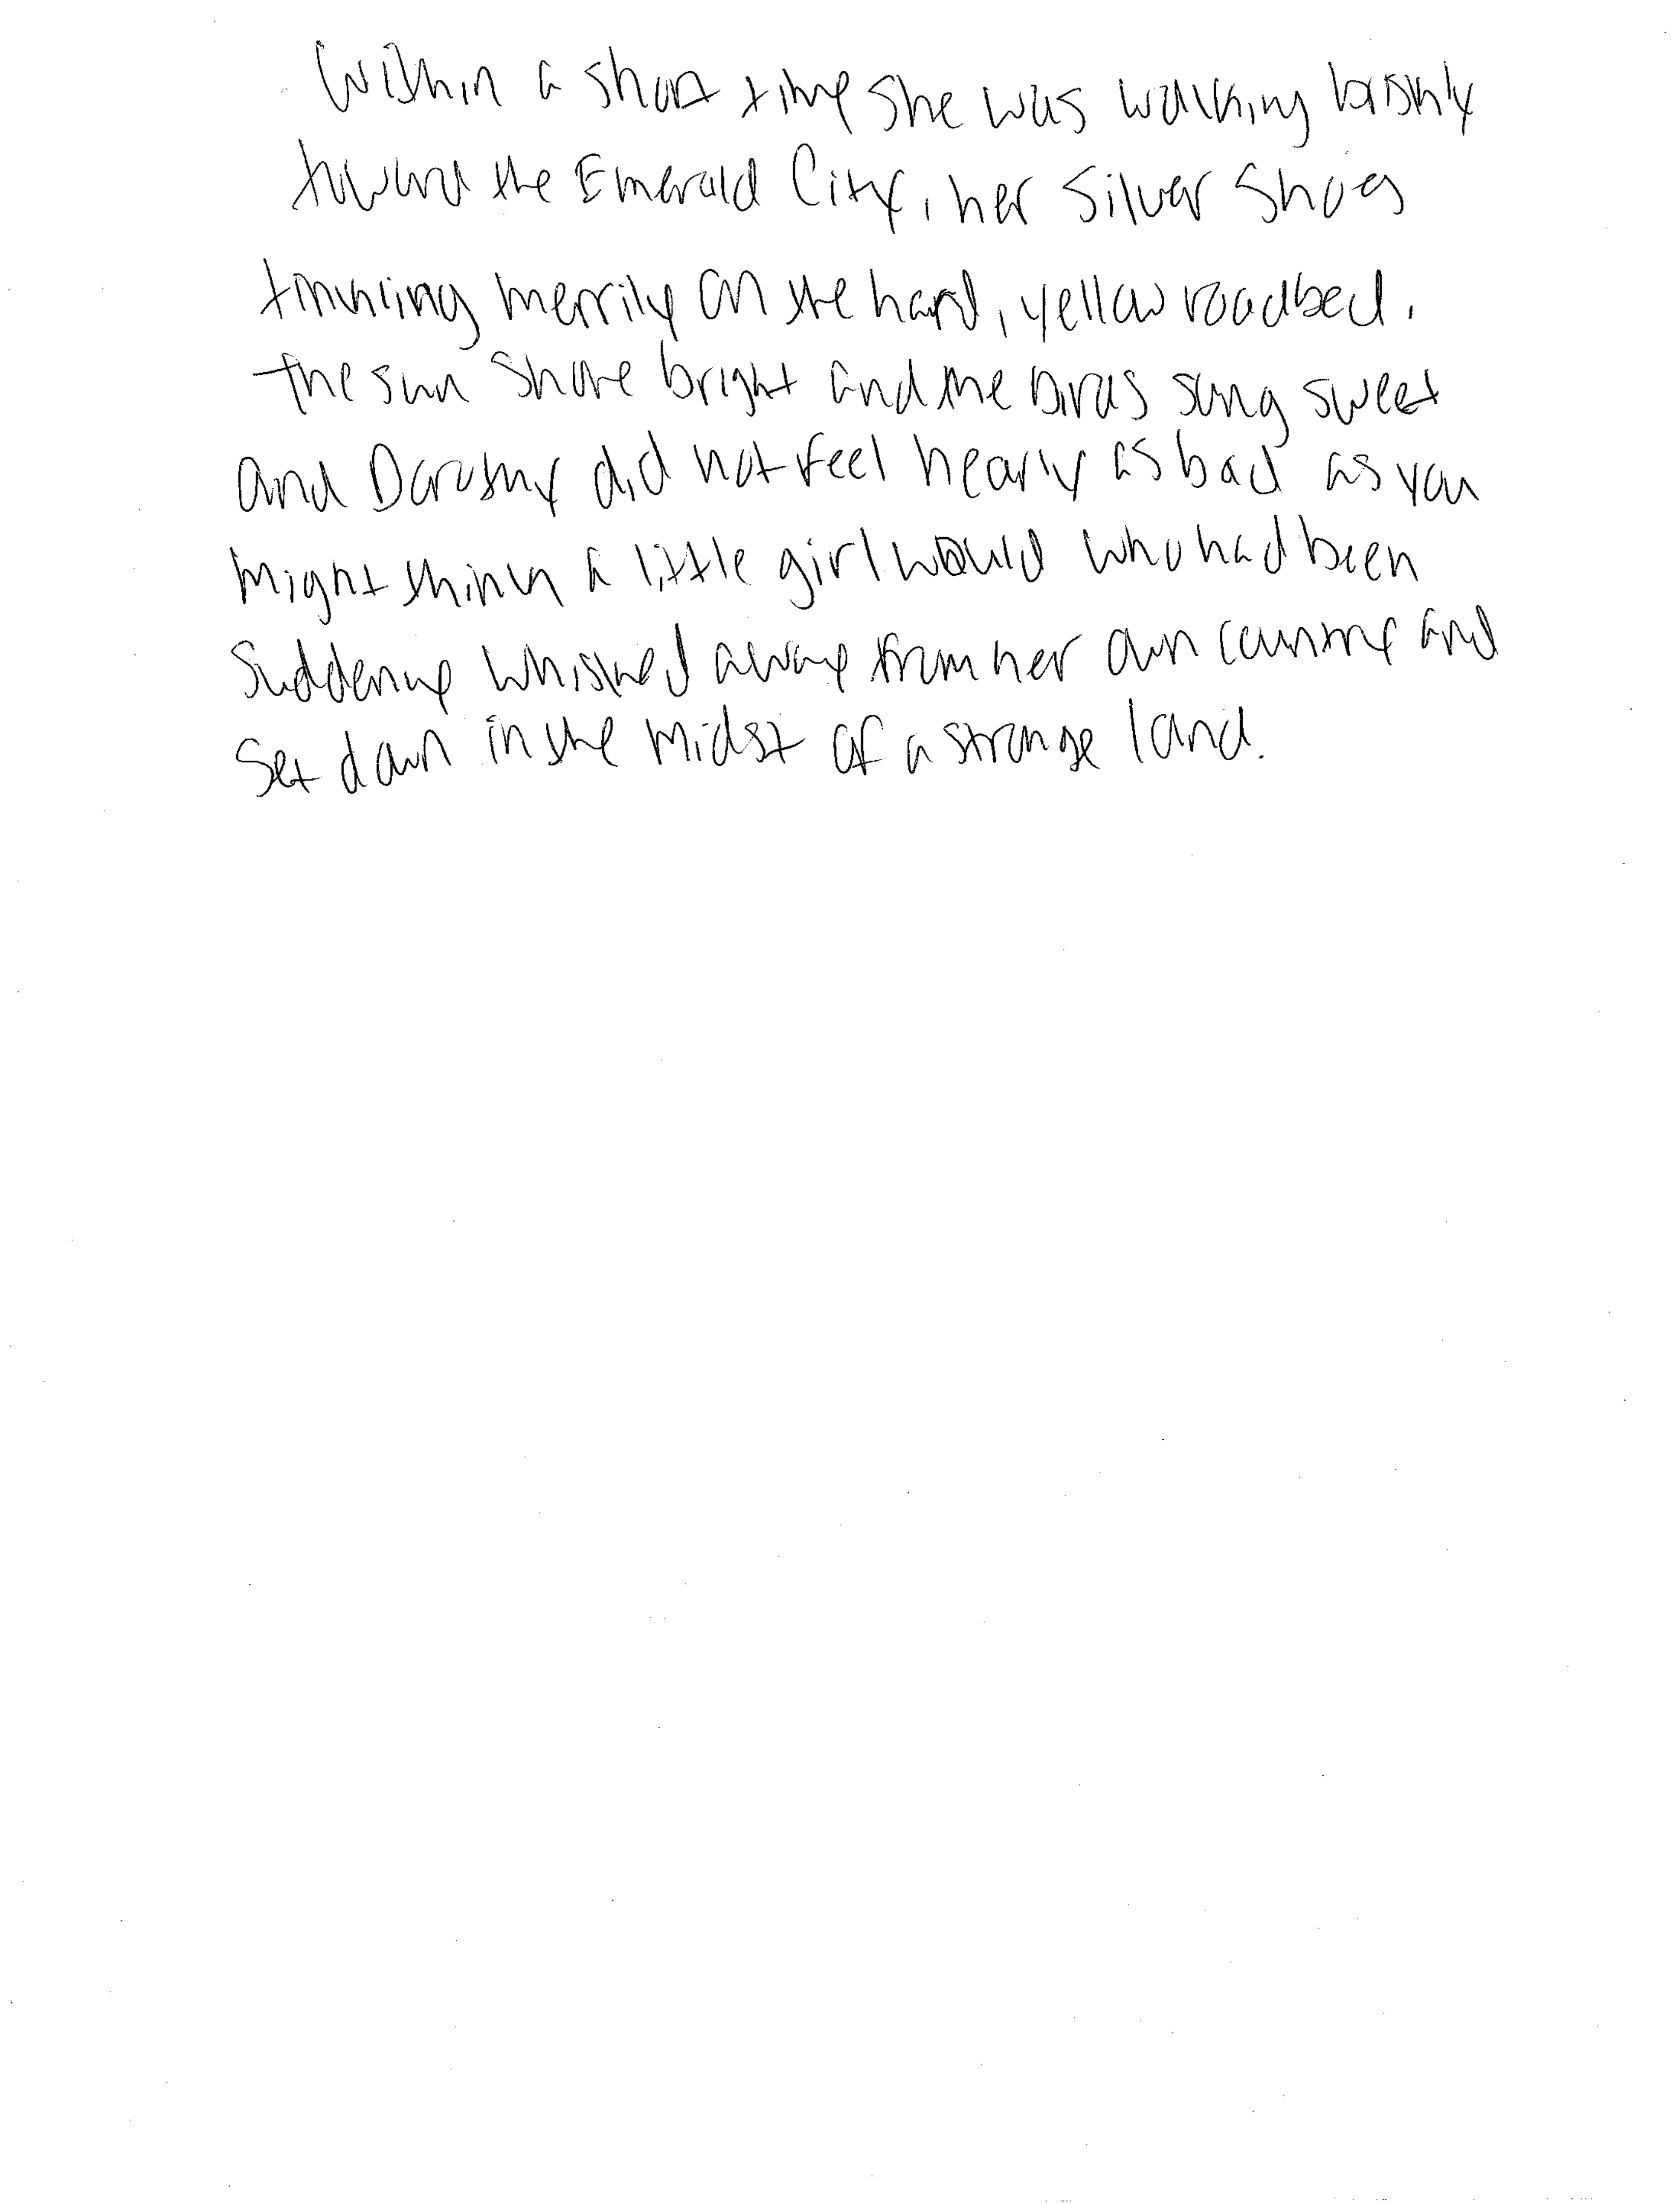 Within a short time she was walking briskly
toward the Emerald City, her Silver Shoes
tinkling merrily on the hard, yellow roadbed.
The sun shone bright and the birds sung sweet
and Dorothy did not feel nearly as bad as you
might think a little girl would who had been
suddenly whisked away from her own country and
set down in the midst of a strange land.